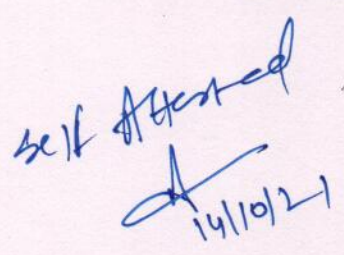 Self Attested
14/10/21